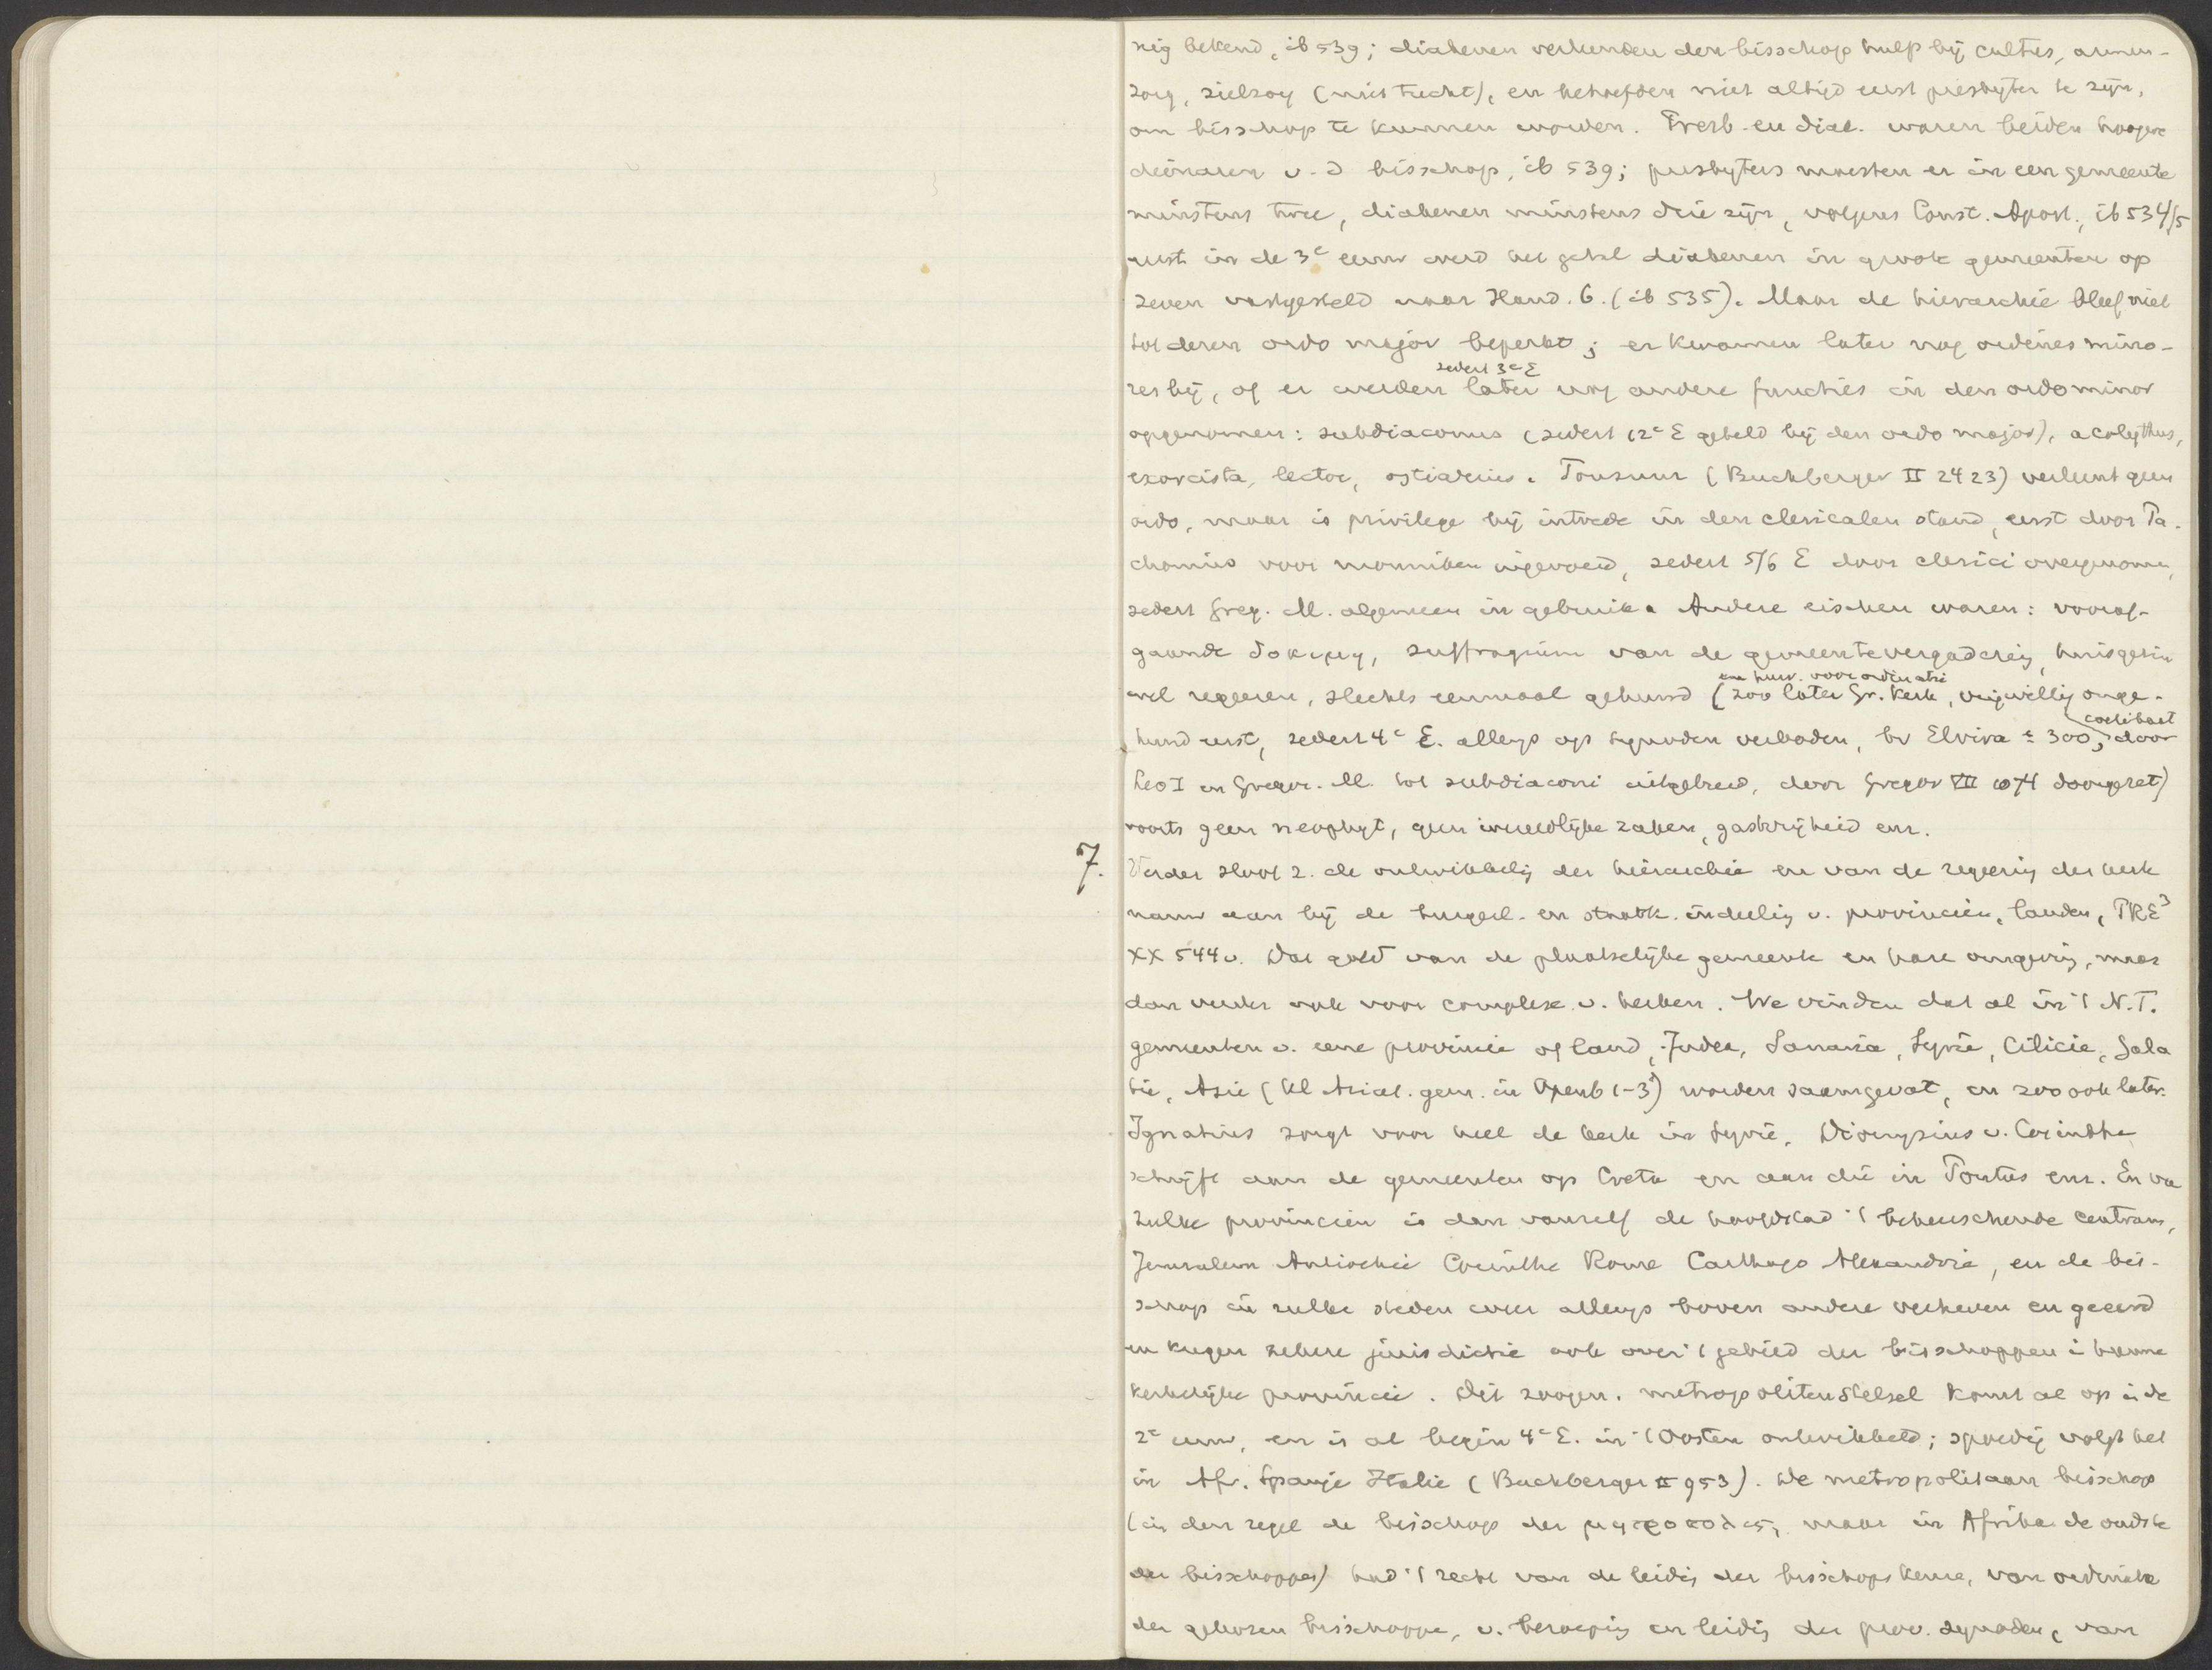 nig bekend, ib 539; diakenen verleenden den bisschop hulp bij cultus, armen-
zorg, zielzorg (niet tucht), en behoefden niet altijd eerst presbyter te zijn,
om bisschop te kunnen worden. Presb. en diak. waren beiden hoogere
dienaren v. d bisschop, ib 539; presbyters moesten er in een gemeente
minstens twee, diakenen minstens drie zijn, volgens Const. Apost., ib 534/5
eerst in de 3e eeuw werd het getal diakenen in groote gemeenten op
zeven vastgesteld naar Hand. 6. (ib 535). Maar de hierarchie bleef niet
tot dezen ordo major beperkt; er kwamen later nog ordines mino-
res bij, of er werden later nog andere functies in den ordo minor
sedert 3e E
opgenomen: subdiaconus (sedert 12e E geteld bij den ordo major), acolythus,
exorcista, lector, ostiarius. Tonsuur (Buchberger II 2423) verleent geen
ordo, maar is privilege bij intrede in den clericalen stand, eerst door Pa-
chomius voor monniken ingevoerd, sedert 5/6 E door clerici overgenomen,
sedert Greg. M. algemeen in gebruik. Andere eischen waren: vooraf-
gaande δοκιμη, suffragium van de gemeentevergadering, huisgezin
wel regeeren, slechts eenmaal gehuwd (zoo later Gr. Kerk, vrijwillig onge-
een huw. voor ordinatie
huwd eerst, sedert 4e E. allengs op synoden verboden, bv Elvira ± 300, door
coelibaat
Leo I en Gregor. M. tot subdiaconi uitgebreid, door Gregor VII 1074 doorgezet)
voorts geen neophyt, geen wereldlijke zaken, gastvrijheid enz.
7. Verder sloot z. de ontwikkeling der hierarchie en van de regeering der kerk
nauw aan bij de burgerl. en staatk. indeeling v. provincien, landen, PRE³
XX 544v. Dat gold van de plaatselijke gemeente en hare omgeving, maar
dan verder ook voor complexe v. kerken. We vinden dat al in 't N.T.
gemeenten v. eene provincie of land, Judea, Samaria, Syrie, Cilicie, Gala
tie, Azie (Kl Aziat. gem. in Openb 1-3) worden saamgevat, en zoo ook later.
Ignatius zorgt voor heel de kerk in Syrie, Dionysius v. Corinthe
schrijft aan de gemeenten op Creta en aan die in Pontus enz. En van
zulke provincien is dan vanzelf de hoofdstad 't beheerschende centrum,
Jeruzalem Antiochie Corinthe Rome Carthago Alexandrie, en de bis-
schop in zulke steden werd allengs boven andere verheven en geeerd
en kregen zekere jurisdictie ook over 't gebied der bisschoppen i hunne
kerkelijke provincie. Dit zoogen. metropolitenstelsel komt al op in de
2e eeuw, en is al begin 4e E. in 't Oosten ontwikkeld; spoedig volgt het
in Afr. Spanje Italie (Buchberger II 953). De metropolitaan bisschop
(in den regel de bisschop der μητροπολις, maar in Afrika de oudste
der bisschoppen) had 't recht van de leiding der bisschopskeuze, van ordinatie
der gekozen bisschoppen, v. beroeping en leiding der prov. synoden, van